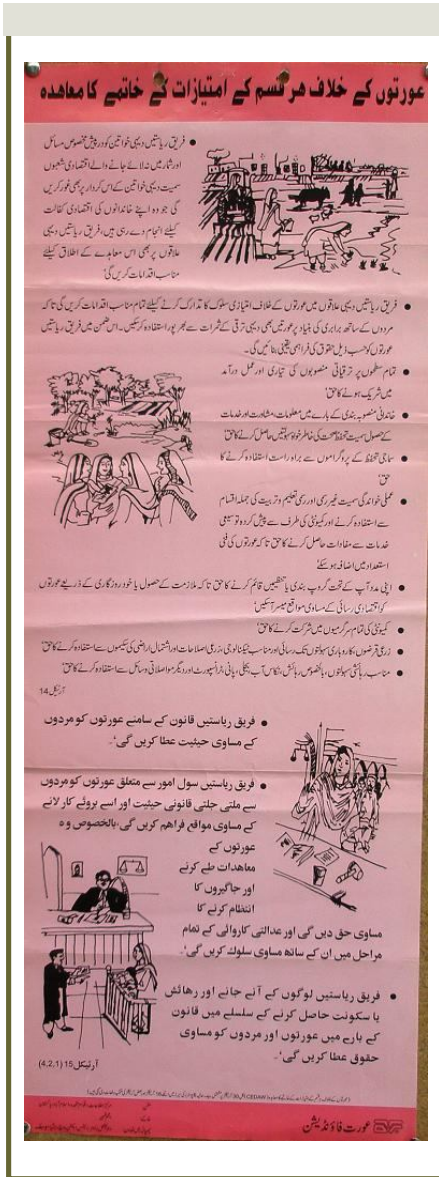 عورتوں کے خلاف ہر قسم کے امتیازات کے خاتمے کا معاہدہ
فریق ریاستیں دیہی خواتین کو درپیش مخصوص مسائل
اور شمار میں نہ لائے جانے والے اقتصادی شعبوں
سمیت دیہی خواتین کے اس کردار پر بھی غور کریں
گی جو وہ اپنے خاندانوں کی اقتصادی کفالت
کیلئے انجام دے رہی ہیں، فریق ریاستیں دیہی
علاقوں پر بھی اس معاہدے کے اطلاق کیلئے
مناسب اقدامات کریں گی'
فریق ریاستیں دیہی علاقوں میں عورتوں کے خلاف امتیازی سلوک کا تدارک کرنے کیلئے تمام مناسب اقدامات کریں گی تاکہ
مردوں کے ساتھ برابری کی بنیاد پر عورتیں بھی دیہی ترقی کے ثمرات سے بھرپور استفادہ کرسکیں۔ اس ضمن میں فریق ریاستیں
عورتوں کو حسب ذیل حقوق کی فراہمی یقینی بنائیں گی۔
تمام سطحوں پر ترقیاتی منصوبوں کی تیاری اور عمل درآمد
میں شریک ہونے کا حق'
خاندانی منصوبہ بندی کے بارے میں معلومات، مشاورت اور خدمات
کے حصول سمیت تحفظ صحت کی خاطر خواہ سہولتیں حاصل کرنے کا حق'
سماجی تحفظ کے پروگراموں سے براہ راست استفادہ کرنے کا
حق'
عملی خواندگی سمیت غیر رسمی اور رسمی تعلیم و تربیت کی جملہ اقسام
سے استفادہ کرنے اور کمیونٹی کی طرف سے پیش کردہ توسیعی
خدمات سے مفادات حاصل کرنے کا حق تاکہ عورتوں کی فنی
استعداد میں اضافہ ہوسکے'
اپنی مدد آپ کے تحت گروپ بندی یا تنظیمیں قائم کرنے کا حق تاکہ ملازمت کے حصول یا خود روزگاری کے ذریعے عورتوں
کو اقتصادی رسائی کے مساوی مواقع میسر آسکیں'
کمیونٹی کی تمام سرگرمیوں میں شرکت کرنے کا حق'
زرعی قرضوں، کاروباری سہولتوں تک رسائی اور مناسب ٹیکنالوجی، زرعی اصلاحات اور اشتمال اراضی کی سکیموں سے استفادہ کرنے کا حق'
مناسب رہائشی سہولتوں، بالخصوص رہائش، نکاس آب، بجلی، پانی، ٹرانسپورٹ اور دیگر مواصلاتی وسائل سے استفادہ کرنے کا حق'
آرٹیکل 14
فریق ریاستیں قانون کے سامنے عورتوں کو مردوں
کے مساوی حیثیت عطا کریں گی'۔
فریق ریاستیں سول امور سے متعلق عورتوں کو مردوں
سے ملتی جلتی قانونی حیثیت اور اسے بروئے کار لانے
کے مساوی مواقع فراہم کریں گی، بالخصوص وہ
عورتوں کے
معاہدات طے کرنے
اور جاگیروں کا
انتظام کرنے کا
مساوی حق دیں گی اور عدالتی کاروائی کے تمام
مراحل میں ان کے ساتھ مساوی سلوک کریں گی'۔
فریق ریاستیں لوگوں کے آنے جانے اور رہائش
یا سکونت حاصل کرنے کے سلسلے میں قانون
کے بارے میں عورتوں اور مردوں کو مساوی
حقوق عطا کریں گی'۔
آرٹیکل 15 (4,2,1)
عورت فاؤنڈیشن